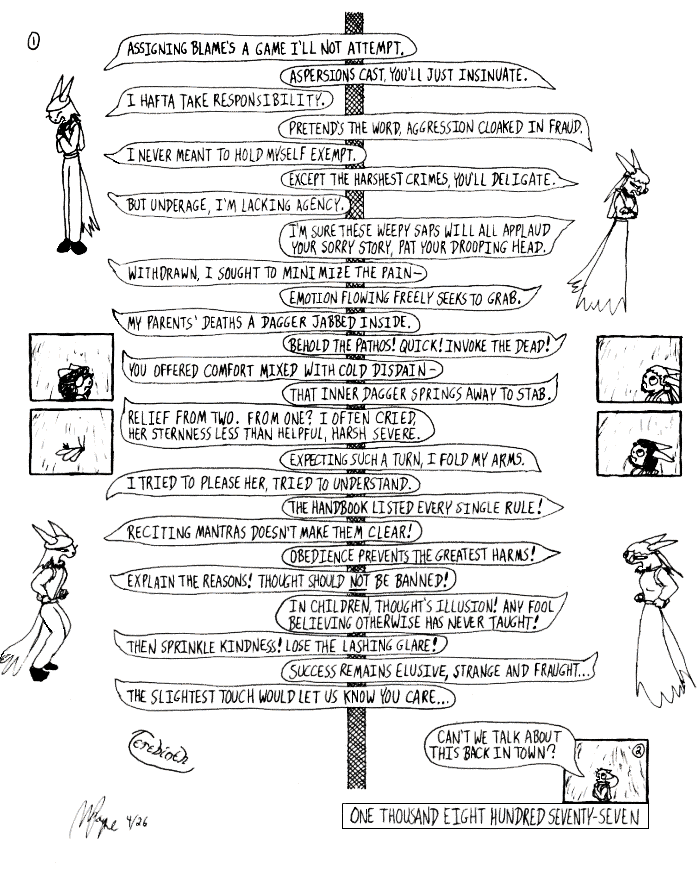 1
ASSIGNING BLAME'S A GAME I'LL NOT ATTEMPT.
ASPERSIONS CAST, YOU'LL JUST INSINUATE.
I HAFTA TAKE RESPONSIBILITY.
PRETEND'S THE WORD, AGGRESSION CLOAKED IN FRAUD.
I NEVER MEANT TO HOLD MYSELF EXEMPT.
EXCEPT THE HARSHEST CRIMES, YOU'LL DELIGATE.
BUT UNDERAGE, I'M LACKING AGENCY.
I'M SURE THESE WEEPY SAPS WILL ALL APPLAUD
YOUR SORRY STORY, PAT YOUR DROOPING HEAD.
WITHDRAWN, I SOUGHT TO MINIMIZE THE PAIN—
EMOTION FLOWING FREELY SEEKS TO GRAB.
MY PARENTS' DEATHS A DAGGER JABBED INSIDE.
BEHOLD THE PATHOS! QUICK! INVOKE THE DEAD!
YOU OFFERED COMFORT MIXED WITH COLD DISDAIN—
THAT INNER DAGGER SPRINGS AWAY TO STAB.
RELIEF FROM TWO. FROM ONE? I OFTEN CRIED,
HER STERNNESS LESS THAN HELPFUL, HARSH SEVERE.
EXPECTING SUCH A TURN, I FOLD MY ARMS.
I TRIED TO PLEASE HER, TRIED TO UNDERSTAND.
THE HANDBOOK LISTED EVERY SINGLE RULE!
RECITING MANTRAS DOESN'T MAKE THEM CLEAR!
OBEDIENCE PREVENTS THE GREATEST HARMS!
EXPLAIN THE REASONS! THOUGHT SHOULD NOT BE BANNED!
IN CHILDREN, THOUGHT'S ILLUSION! ANY FOOL
BELIEVING OTHERWISE HAS NEVER TAUGHT!
THEN SPRINKLE KINDNESS! LOSE THE LASHING GLARE!
SUCCESS REMAINS ELUSIVE, STRANGE AND FRAUGHT...
THE SLIGHTEST TOUCH WOULD LET US KNOW YOU CARE...
CAN'T WE TALK ABOUT
THIS BACK IN TOWN?
2
4/26
ONE THOUSAND EIGHT HUNDRED SEVENTY-SEVEN